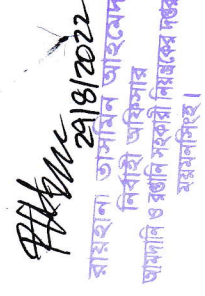 29/8/2022
রায়হানা তাসমিন আহমেদ
নির্বাহী অফিসার
আমদানি ও রপ্তানি সহকারী নিয়ন্ত্রকের দপ্তর
ময়মনসিংহ।